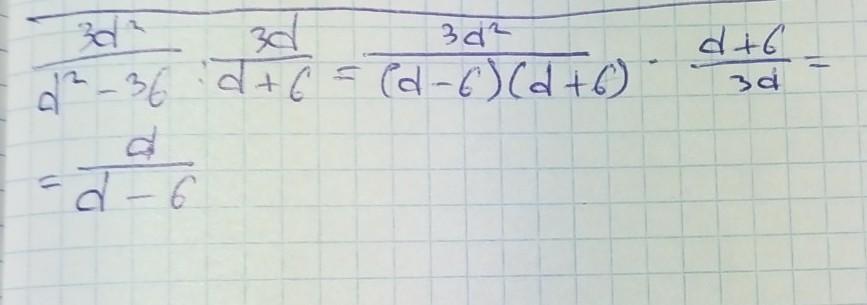 3d²/(d² - 36) : 3d/(d + 6) = 3d²/((d - 6)(d + 6)) · (d + 6)/3d =
= d/(d - 6)